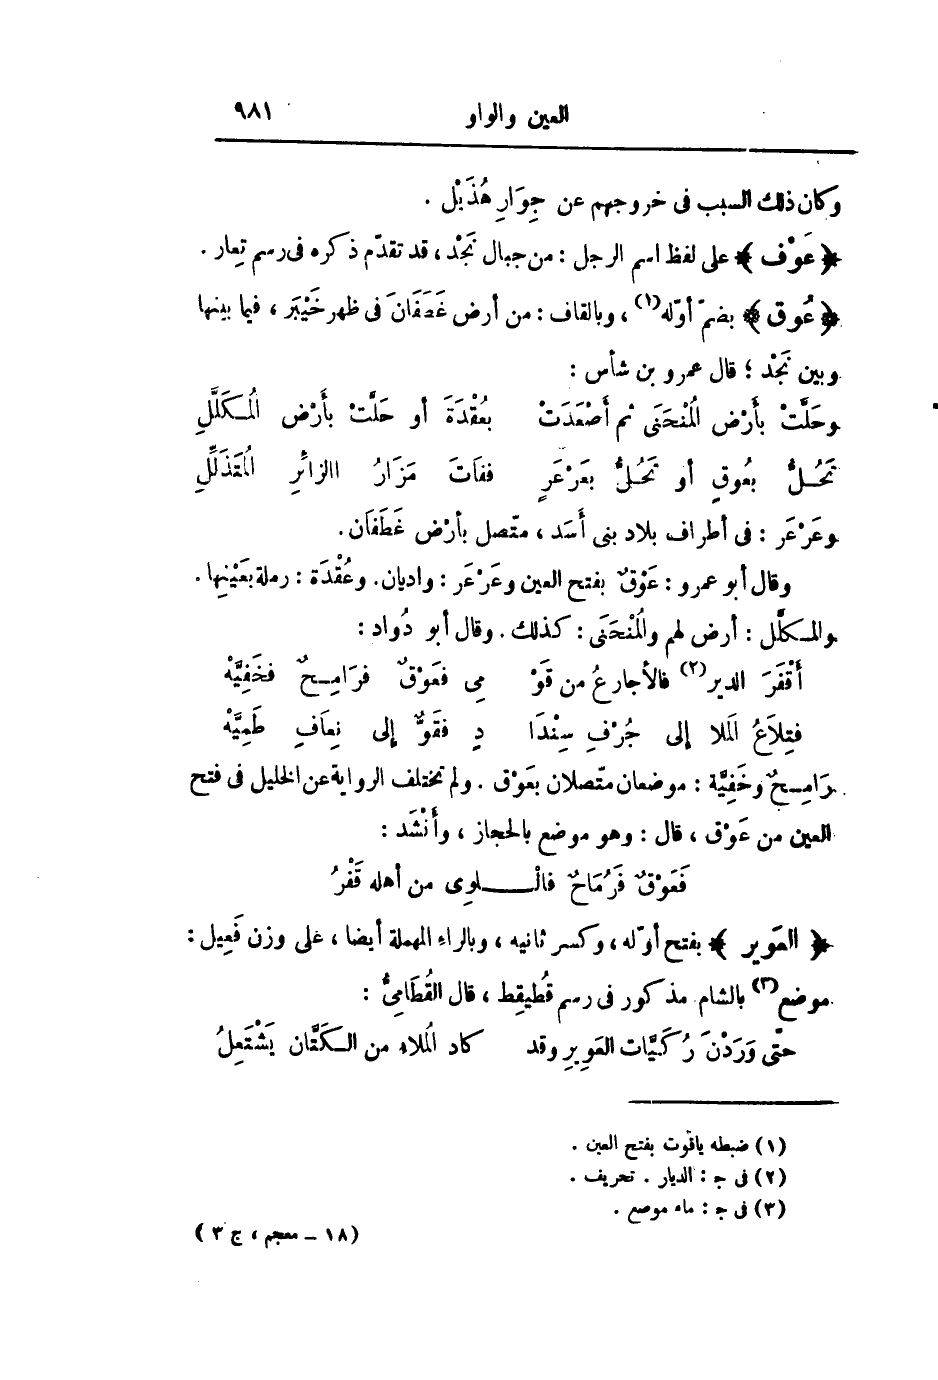 العين والواو ٩٨١
وكان ذلك السبب فى خروجهم عن جِوَارِ هُذَيْل .
﴿ عَوْف ﴾ على لفظ اسم الرجل : من جبال نَجْد ، قد تقدّم ذكره فى رسم تِعار .
﴿ عُوق ﴾ بضمّ أوّله (١) ، وبالقاف : من أرض غَطَفَانَ فى ظهر خَيْبَر ، فيما بينها
وبين نَجْد ؛ قال عمرو بن شأس :
وحَلَّتْ بأَرْض المُنْحَنَى ثم أَصْعَدَتْ بعُقْدَةَ أو حَلَّتْ بأَرْض المُـكَلَّلِ
تَحُـلُّ بعُوقٍ أو تَحُـلُّ بعَرْعَرٍ ففاتَ مَزَارُ الزائرِ المُتَذَلِّلِ
وعَرْعَر : فى أطراف بلاد بنى أَسَد ، متّصل بأرْض غَطَفان .
وقال أبو عمرو : عَوْقٌ بفتح العين وعَرْعَر : واديان. وعُقْدَة : رملة بعَيْنِها .
والمـكلَّل : أرض لهم والمُنْحَنَى : كذلك . وقال أبو دُواد :
أَقْفَرَ الدير (٢) فالأجارعُ من قَوْ مِى فعَوْقٌ فرَامِـحٌ فخَفِيَّهْ
فتِلاَعُ المَلا إلى جُرْفِ سِنْدَا دٍ فقَوٌّ إلى نِعاَفِ طَمِيَّهْ
رَامِـحٌ وخَفِيَّة : موضعان متّصلان بعَوْق . ولم تختلف الرواية عن الخليل فى فتح
العين من عَوْق ، قال : وهو موضع بالحجاز ، وأَنْشَد :
فَعَوْقٌ فَرُمَاحٌ فالْـــــلوِى من أهله قَفْرُ
﴿ العَوير ﴾ بفتح أوّله ، وكسر ثانيه ، وبالراءِ المهملة أيضا ، على وزن فَعِيل :
موضع (٣) بالشام مذكور فى رسم قُطيقِط ، قال القُطَامِىُّ :
حتّى وَرَدْنَ رُكَيَّات العَوِيرِ وقد كاد المُلاء من الـكَتَّان يَشْتَعِلُ
(١) ضبطه ياقوت بفتح العين .
(٢) فى ج : الديار . تحريف .
(٣) فى ج : ماء موضع .
(١٨ – معجم ، ج ٣ )